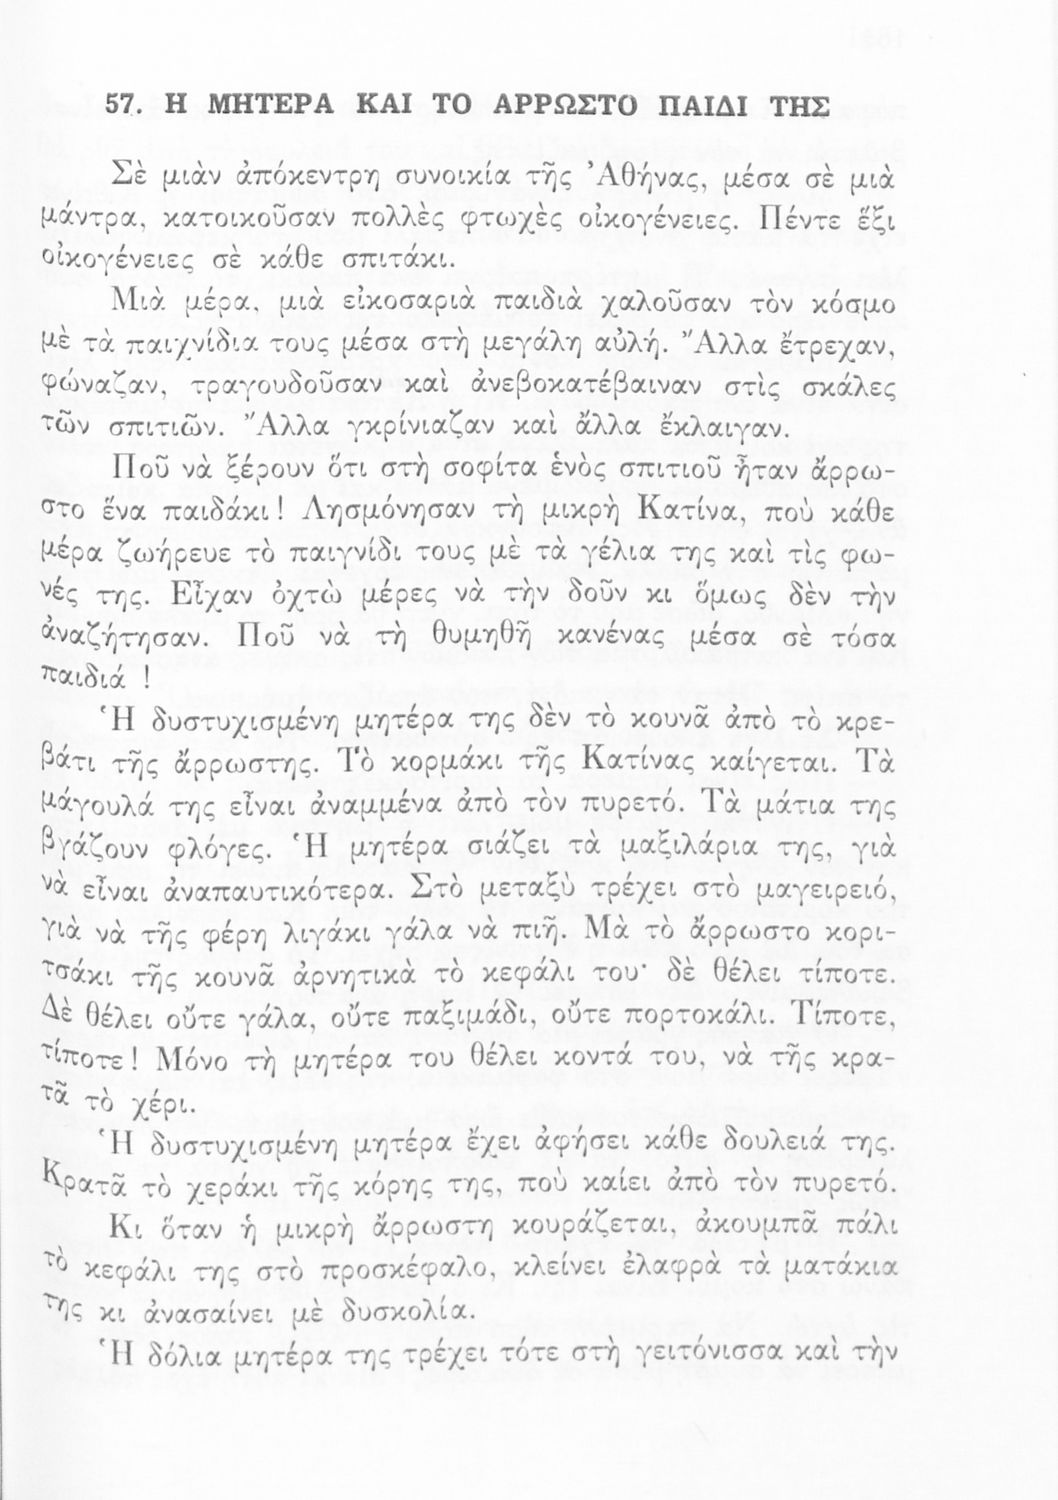 57. Η ΜΗΤΕΡΑ ΚΑΙ ΤΟ ΑΡΡΩΣΤΟ ΠΑΙΔΙ ΤΗΣ
Σὲ μιὰν ἀπόκεντρη συνοικία τῆς Ἀθήνας, μέσα σὲ μιὰ
μάντρα, κατοικοῦσαν πολλὲς φτωχὲς οἰκογένειες. Πέντε ἕξι
οἰκογένειες σὲ κάθε σπιτάκι.
Μιὰ μέρα, μιὰ εἰκοσαριὰ παιδιὰ χαλοῦσαν τὸν κόσμο
μὲ τὰ παιχνίδια τους μέσα στὴ μεγάλη αὐλή. Ἄλλα ἔτρεχαν,
φώναζαν, τραγουδοῦσαν καὶ ἀνεβοκατέβαιναν στὶς σκάλες
τῶν σπιτιῶν. Ἄλλα γκρίνιαζαν καὶ ἄλλα ἔκλαιγαν.
Ποῦ νὰ ξέρουν ὅτι στὴ σοφίτα ἑνὸς σπιτιοῦ ἦταν ἄρρω-
στο ἕνα παιδάκι! Λησμόνησαν τὴ μικρὴ Κατίνα, ποὺ κάθε
μέρα ζωήρευε τὸ παιγνίδι τους μὲ τὰ γέλια της καὶ τὶς φω-
νές της. Εἶχαν ὀχτὼ μέρες νὰ τὴν δοῦν κι ὅμως δὲν τὴν
ἀναζήτησαν. Ποῦ νὰ τὴ θυμηθῆ κανένας μέσα σὲ τόσα
παιδιά !
Ἡ δυστυχισμένη μητέρα της δὲν τὸ κουνᾶ ἀπὸ τὸ κρε-
βάτι τῆς ἄρρωστης. Τὸ κορμάκι τῆς Κατίνας καίγεται. Τὰ
μάγουλά της εἶναι ἀναμμένα ἀπὸ τὸν πυρετό. Τὰ μάτια της
βγάζουν φλόγες. Ἡ μητέρα σιάζει τὰ μαξιλάρια της, γιὰ
νὰ εἶναι ἀναπαυτικότερα. Στὸ μεταξὺ τρέχει στὸ μαγειρειό,
γιὰ νὰ τῆς φέρη λιγάκι γάλα νὰ πιῆ. Μὰ τὸ ἄρρωστο κορι-
τσάκι τῆς κουνᾶ ἀρνητικὰ τὸ κεφάλι του· δὲ θέλει τίποτε.
Δὲ θέλει οὔτε γάλα, οὔτε παξιμάδι, οὔτε πορτοκάλι. Τίποτε,
τίποτε! Μόνο τὴ μητέρα του θέλει κοντά του, νὰ τῆς κρα-
τᾶ τὸ χέρι.
Ἡ δυστυχισμένη μητέρα ἔχει ἀφήσει κάθε δουλειά της.
Κρατᾶ τὸ χεράκι τῆς κόρης της, ποὺ καίει ἀπὸ τὸν πυρετό.
Κι ὅταν ἡ μικρὴ ἄρρωστη κουράζεται, ἀκουμπᾶ πάλι
τὸ κεφάλι της στὸ προσκέφαλο, κλείνει ἐλαφρὰ τὰ ματάκια
της κι ἀνασαίνει μὲ δυσκολία.
Ἡ δόλια μητέρα της τρέχει τότε στὴ γειτόνισσα καὶ τὴν